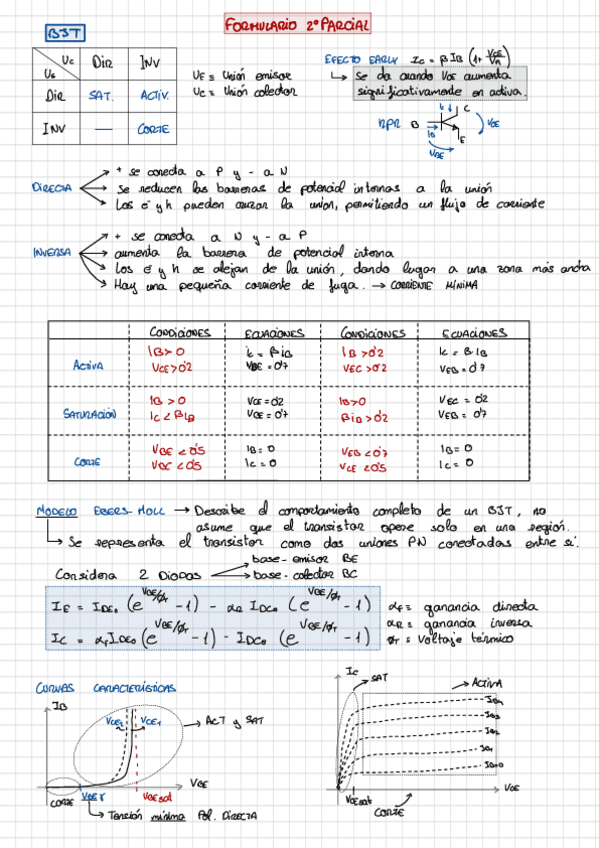 FORMULARIO 2º PARCIAL
BJT
Uc DIR INV
Ue
DIR SAT. ACTIV.
INV — CORTE
UE ≡ Unión emisor
UC ≡ Unión colector
EFECTO EARLY IC = β IB (1 + VCE/VA)
Se da cuando VCE aumenta
significativamente en activa.
NPN B C E IB VBE VCE
DIRECTA
+ se conecta a P y - a N
Se reducen las barreras de potencial internas a la unión
Los e⁻ y h pueden cruzar la unión, permitiendo un flujo de corriente
INVERSA
+ se conecta a N y - a P
aumenta la barrera de potencial interna
Los e⁻ y h se alejan de la unión, dando lugar a una zona más ancha
Hay una pequeña corriente de fuga. → CORRIENTE MÍNIMA
CONDICIONES ECUACIONES CONDICIONES ECUACIONES
ACTIVA
IB > 0 IC = β IB IB > 0'2 IC = β·IB
VCE > 0'2 VBE = 0'7 VEC > 0'2 VEB = 0'7
SATURACIÓN
IB > 0 VCE = 0'2 IB > 0 VEC = 0'2
IC < β IB VBE = 0'7 β IB > 0'2 VEB = 0'7
CORTE
VBE < 0'5 IB = 0 VEB < 0'7 IB = 0
VBC < 0'5 IC = 0 VCE < 0'5 IC = 0
MODELO EBERS-MOLL → Describe el comportamiento completo de un BJT, no
asume que el transistor opere solo en una región.
Se representa el transistor como dos uniones PN conectadas entre sí.
Considera 2 DIODOS
base-emisor BE
base-colector BC
IE = IDE₀ (e^VBE/ΦT - 1) - αR IDC₀ (e^VBE/ΦT - 1)
IC = αF IDE₀ (e^VBE/ΦT - 1) - IDC₀ (e^VBE/ΦT - 1)
αF ≡ ganancia directa
αR ≡ ganancia inversa
ΦT ≡ Voltaje térmico
CURVAS CARACTERÍSTICAS
IB
VCE2 VCE1
ACT y SAT
CORTE
VBEγ
VBEsat
VBE
Tensión mínima Pol. DIRECTA
IC
SAT
ACTIVA
IB4
IB3
IB2
IB1
IB=0
VCEsat
CORTE
VCE